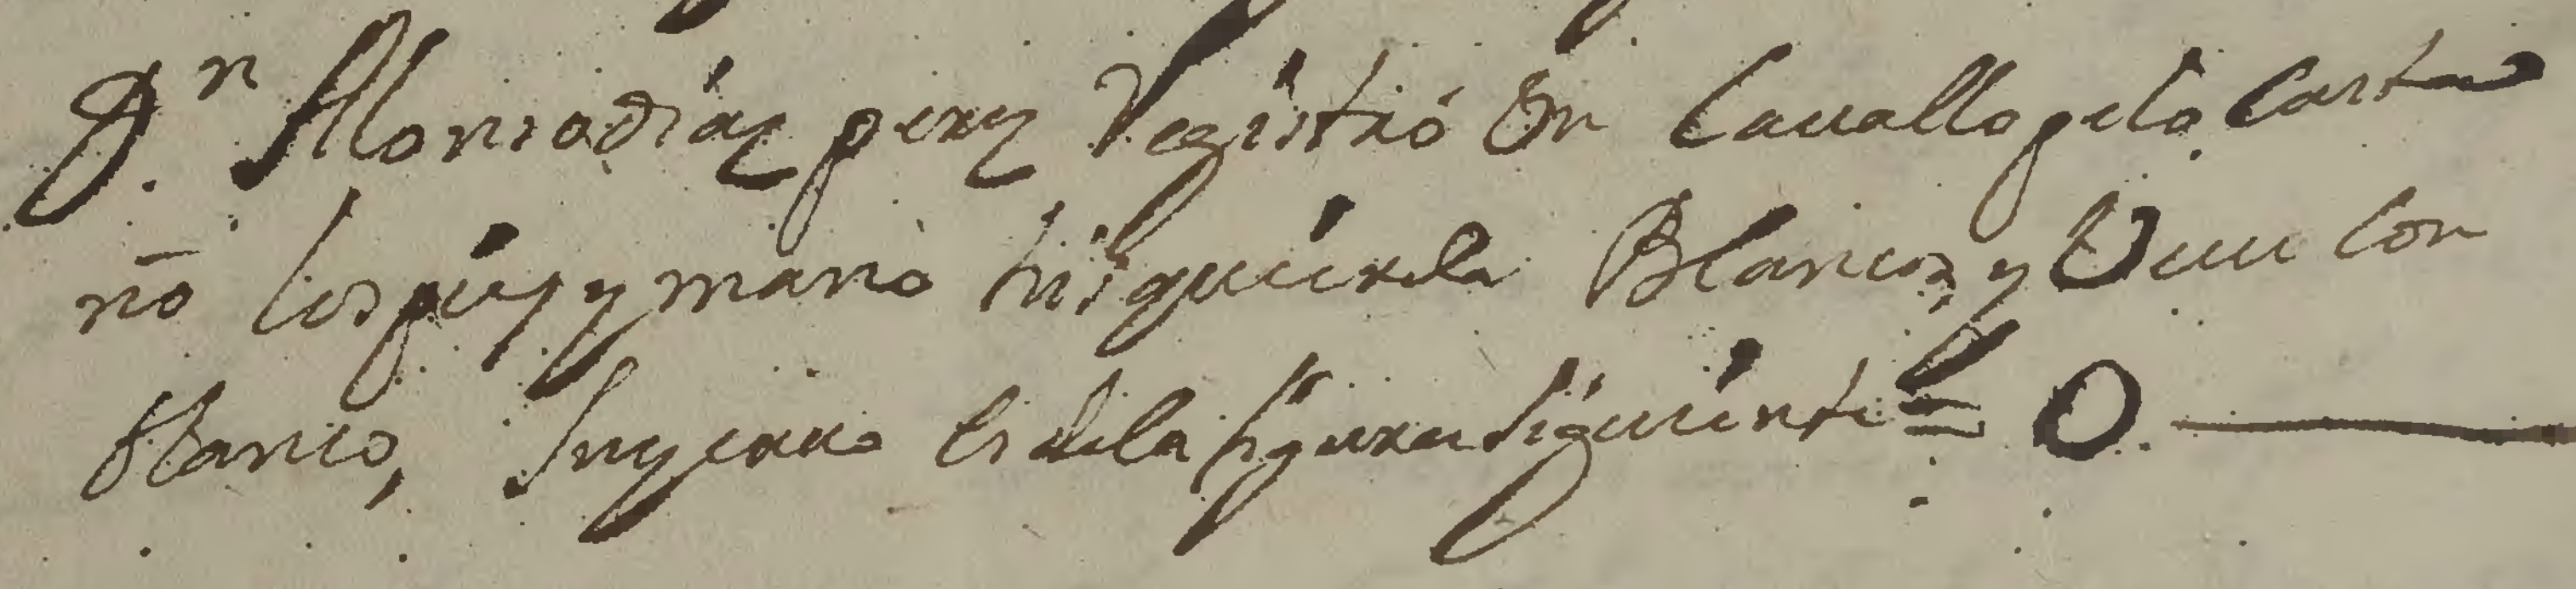 Dn. Alonso diaz perez Registró Vn Cauallo pelo Casta
ño los pies y mano hisquierda Blancos, y Veue Con
blanco, Su yerro es dela figura siguiente = O.